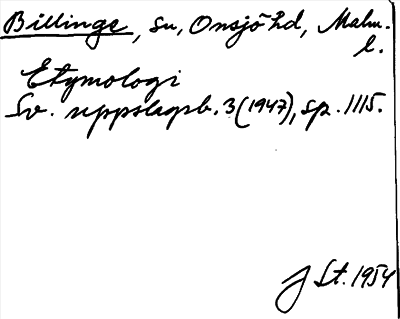 Billinge, sn, Onsjö hd, Malm.
l.
Etymologi
Sv. uppslagsb. 3 (1947), sp. 1115.
J St. 1954